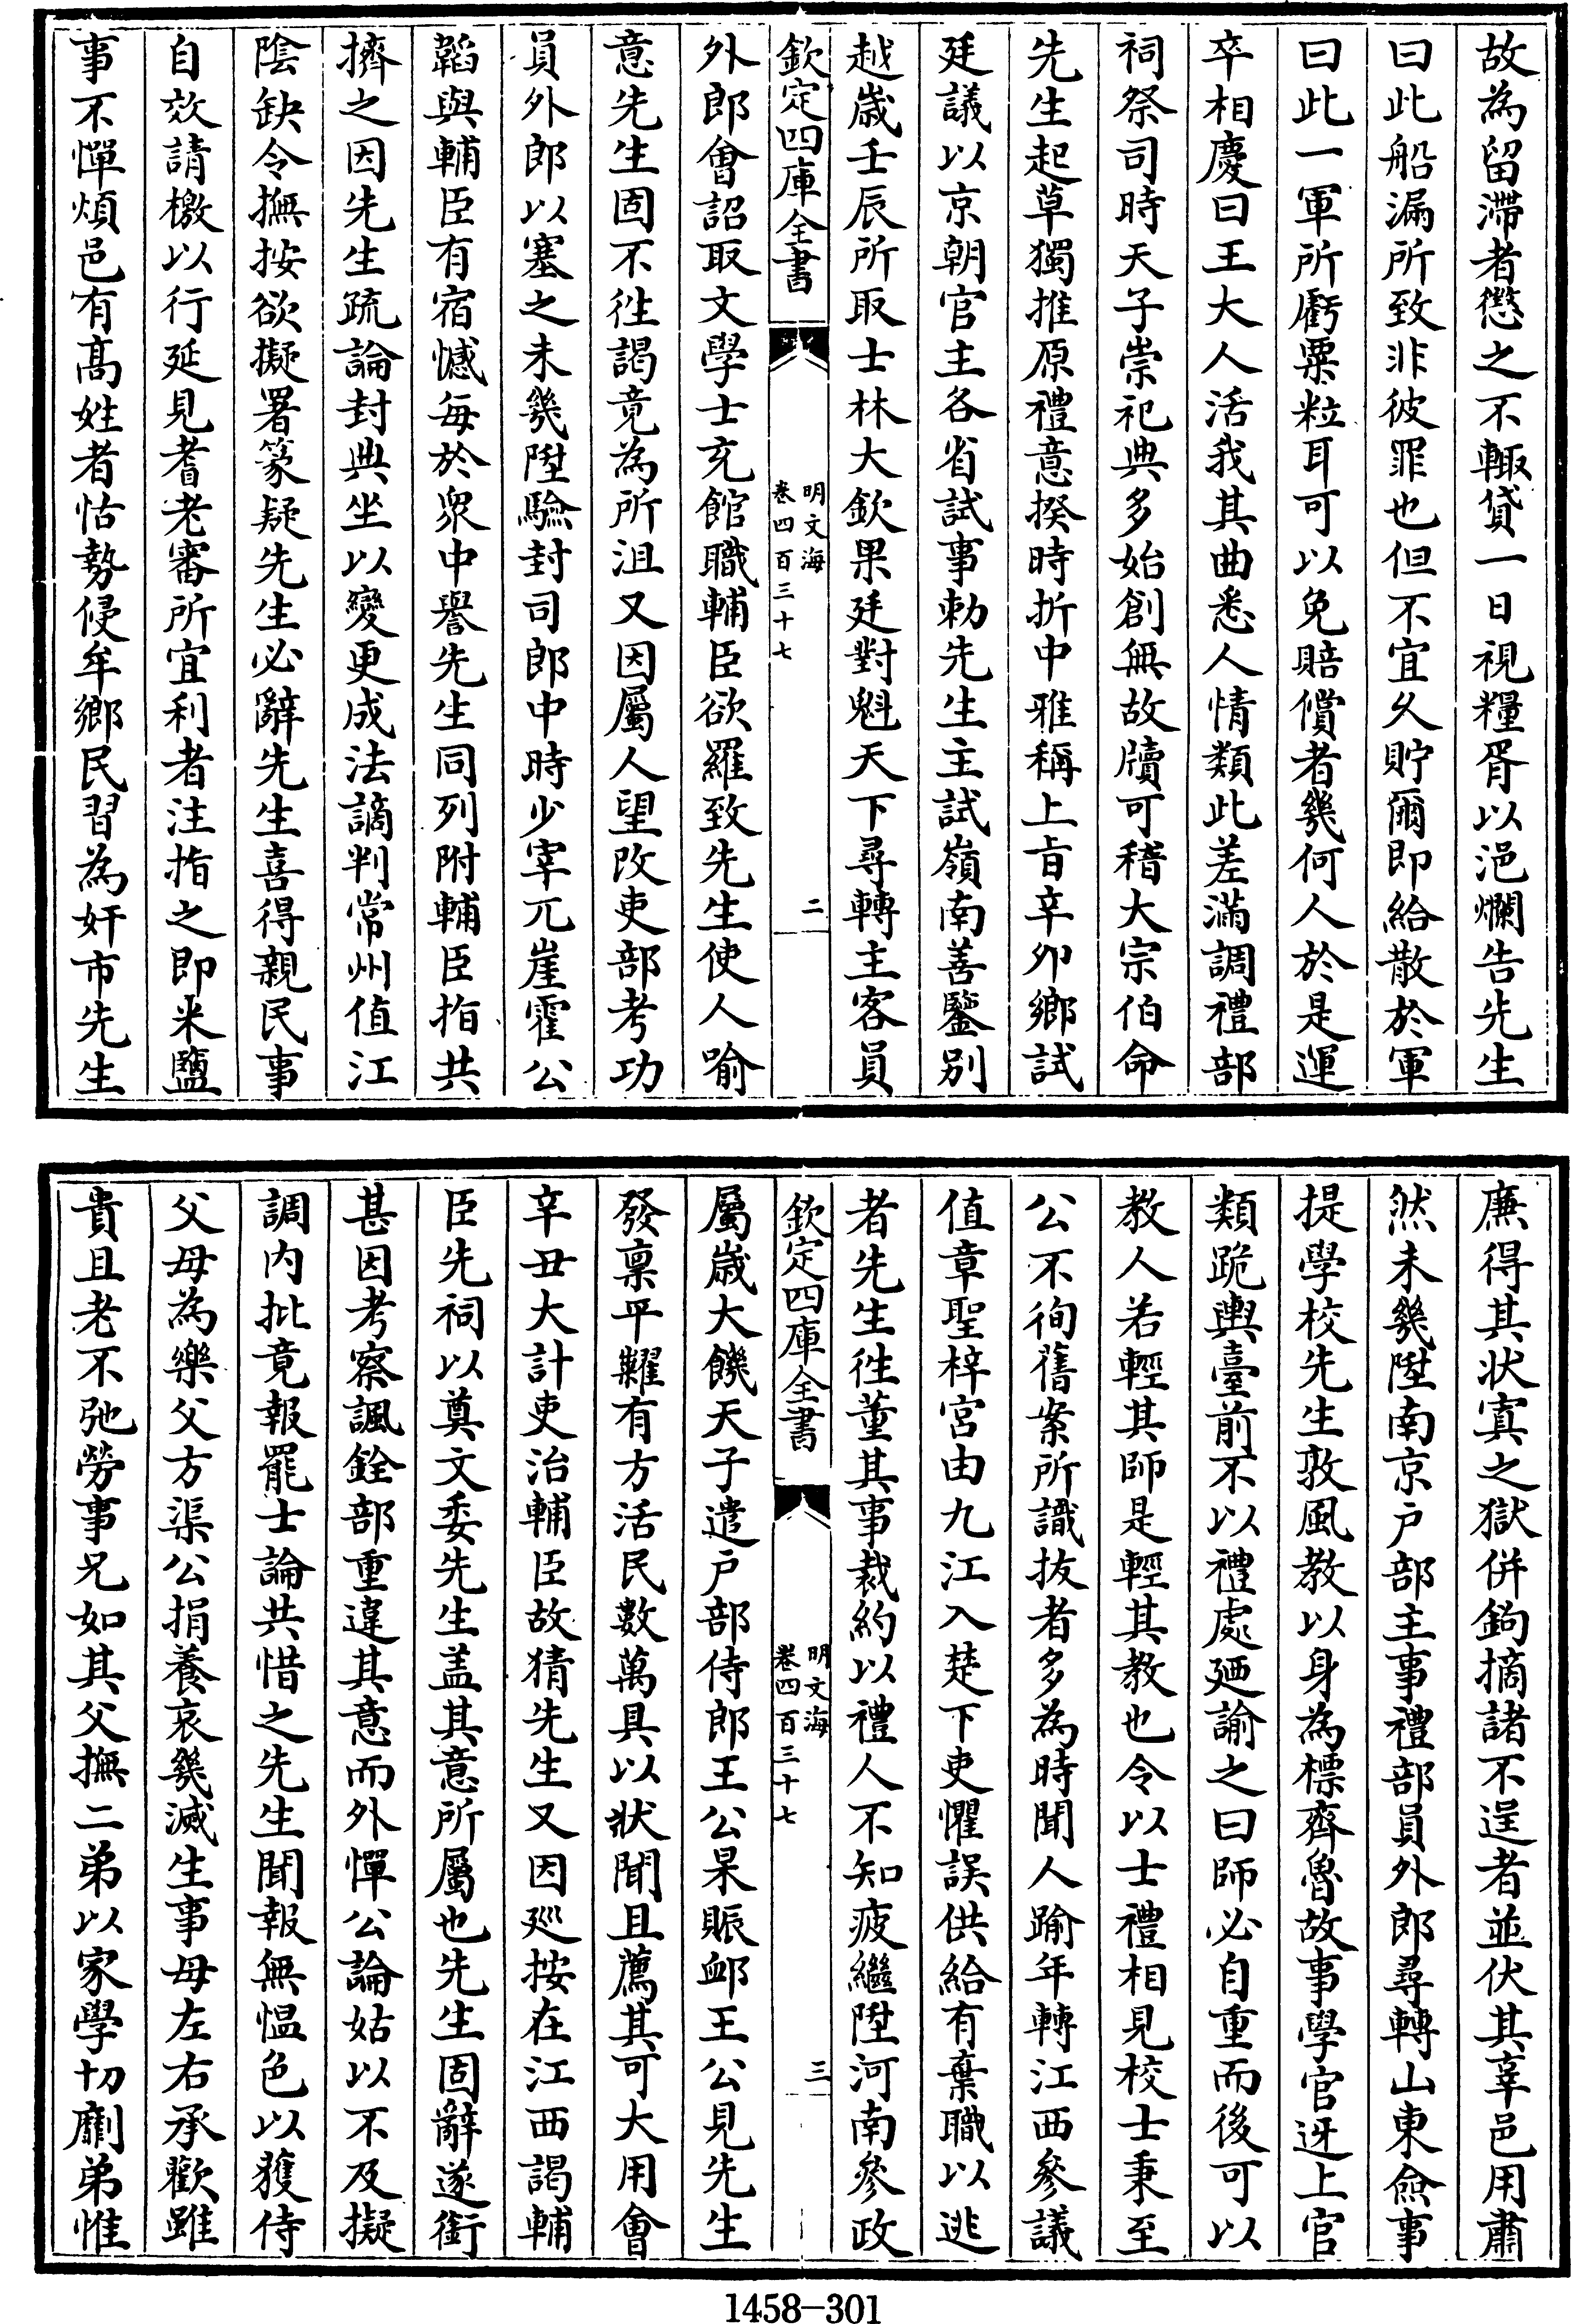 故為留滯者懲之不輙貸一日視糧胥以浥爛告先生
曰此船漏所致非彼罪也但不宜久貯爾即給散於軍
曰此一軍所虧粟粒耳可以免賠償者幾何人於是運
卒相慶曰王大人活我其曲悉人情類此差滿調禮部
祠祭司時天子崇祀典多始創無故牘可稽大宗伯命
先生起草獨推原禮意揆時折中雅稱上旨辛卯鄉試
廷議以京朝官主各省試事勅先生主試嶺南善鑒別
越歲壬辰所取士林大欽果廷對魁天下尋轉主客員
欽定四庫全書
明文海
卷四百三十七
二
外郎會詔取文學士充館職輔臣欲羅致先生使人喻
意先生固不徃謁竟為所沮又因屬人望改吏部考功
員外郎以塞之未幾陞驗封司郎中時少宰兀崖霍公
韜與輔臣有宿憾每於衆中譽先生同列附輔臣指共
擠之因先生疏論封典坐以變更成法謫判常州值江
隂缺令撫按欲擬署篆疑先生必辭先生喜得親民事
自效請檄以行延見耆老審所宜利者注指之即米鹽
事不憚煩邑有髙姓者怙勢侵牟鄉民習為奸市先生
廉得其状寘之獄併鉤摘諸不逞者並伏其辜邑用肅
然未幾陞南京户部主事禮部員外郎尋轉山東僉事
提學校先生敦風教以身為標齊魯故事學官迓上官
類跪輿臺前不以禮處廼諭之曰師必自重而後可以
教人若輕其師是輕其教也令以士禮相見校士秉至
公不徇舊案所識抜者多為時聞人踰年轉江西參議
值章聖梓宮由九江入楚下吏懼誤供給有棄職以逃
者先生徃董其事裁約以禮人不知疲繼陞河南參政
欽定四庫全書
明文海
卷四百三十七
三
屬歲大饑天子遣户部侍郎王公杲賑䘏王公見先生
發稟平糶有方活民數萬具以狀聞且薦其可大用會
辛丑大計吏治輔臣故猜先生又因廵按在江西謁輔
臣先祠以奠文委先生盖其意所屬也先生固辭遂銜
甚因考察諷銓部重違其意而外憚公論姑以不及擬
調内批竟報罷士論共惜之先生聞報無愠色以獲侍
父母為樂父方渠公捐養哀幾滅生事母左右承歡雖
貴且老不弛勞事兄如其父撫二弟以家學切劘弟惟
1458-301